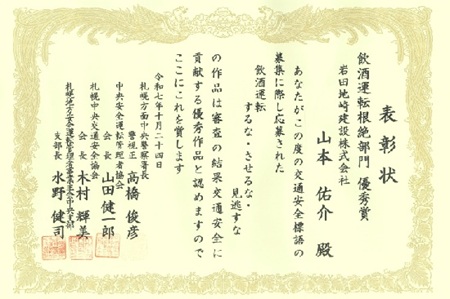 表彰状
飲酒運転根絶部門 優秀賞
岩田地崎建設株式会社
山本 佑介 殿
あなたがこの度の交通安全標語の
募集に際し応募された
飲酒運転
するな・させるな・
見逃すな
の作品は審査の結果交通安全に
貢献する優秀作品と認めますので
ここにこれを賞します
令和七年十月二十四日
札幌方面中央警察署長
警視正 高橋 俊彦
中央安全運転管理者協会
会長 山田 健一郎
札幌中央交通安全協会
会長 木村 輝美
支部長 水野 健司